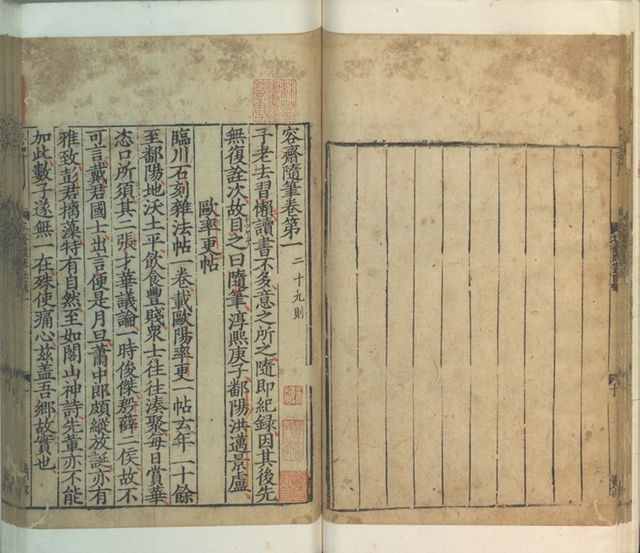 容齋隨筆卷第一 二十九則
子老去習懶讀書不多意之所之隨即紀録因其後先
無復詮次故目之曰隨筆淳熈庚子鄱陽洪邁景盧
歐率更帖
臨川石刻雜法帖一卷載歐陽率更一帖云年二十餘
至鄱陽地沃土平飲食豐賤衆士往往湊聚每日賞華
恣口所須其二張才華議論一時俊傑殷薛二侯故不
可言戴君國士出言便是月旦蕭中郎頗縱放誕亦有
雅致彭君摛藻特有自然至如閣山神詩先輩亦不能
加此數子遂無一在殊使痛心兹盖吾鄉故實也